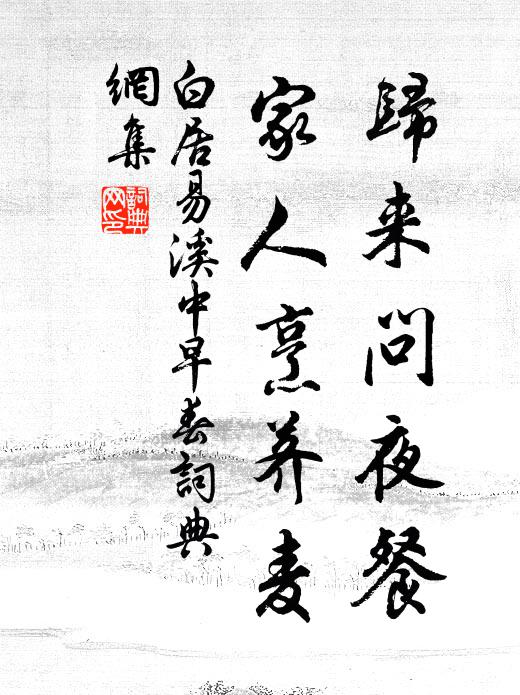 歸来問夜餐
家人烹荠麦
白居易溪中早春詞典
網集
詞典网印